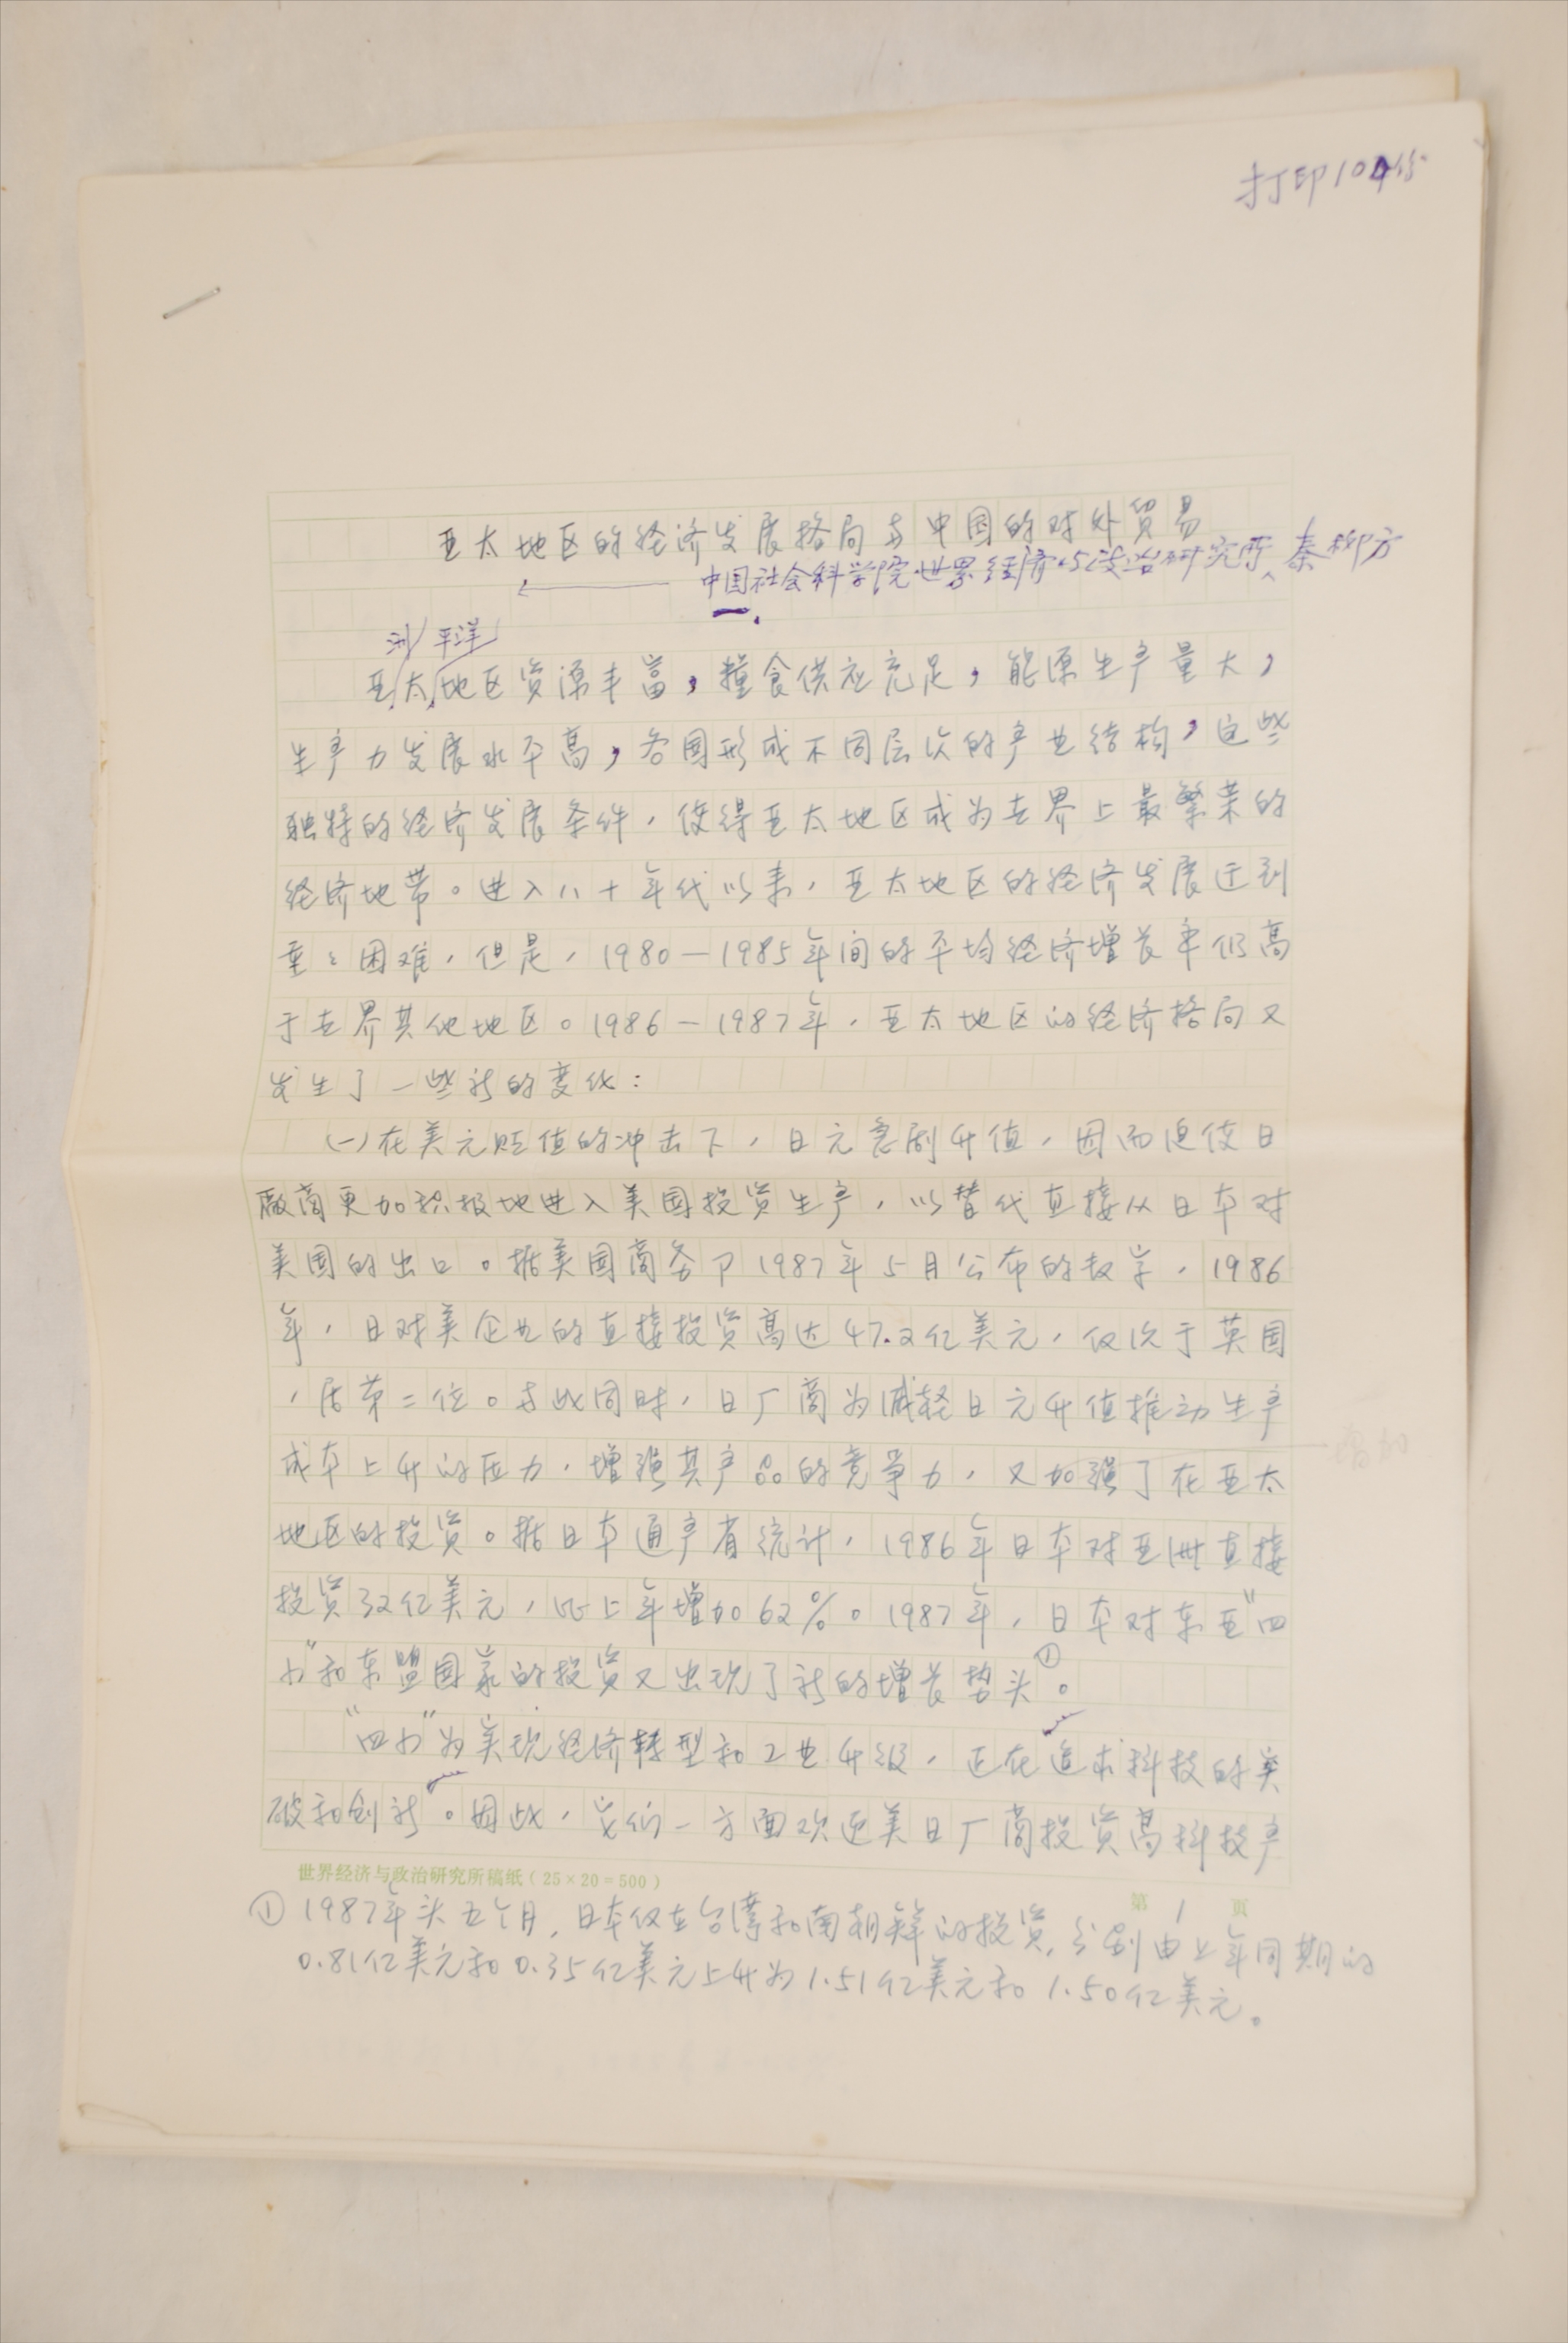 打印10份
亚太地区的经济发展格局与中国的对外贸易
中国社会科学院世界经济与政治研究所、秦柳方
一.
洲 平洋
亚太地区资源丰富，粮食供应充足，能源生产量大，
生产力发展水平高，各国形成不同层次的产业结构，这些
独特的经济发展条件，使得亚太地区成为世界上最繁荣的
经济地带。进入八十年代以来，亚太地区的经济发展迂到
重重困难，但是，1980—1985年间的平均经济增长率仍高
于世界其他地区。1986—1987年，亚太地区的经济格局又
发生了一些新的变化：
(一)在美元贬值的冲击下，日元急剧升值，因而迫使日
厰商更加积极地进入美国投资生产，以替代直接从日本对
美国的出口。据美国商务卩1987年5月公布的数字，1986
年，日对美企业的直接投资高达47.2亿美元，仅次于英国
，居第二位。与此同时，日厂商为减轻日元升值推动生产
成本上升的压力，增强其产品的竞争力，又加强了在亚太
增加
地区的投资。据日本通产省统计，1986年日本对亚洲直接
投资32亿美元，比上年增加62%。1987年，日本对东亚“四
小”和东盟国家的投资又出现了新的增长势头①。
“四小”为实现经济转型和工业升级，正在追求科技的突
破和创新。因此，它们一方面欢迎美日厂商投资高科技产
世界经济与政治研究所稿纸（25×20=500）
第 1 页
① 1987年头五个月，日本仅在台湾和南朝鲜的投资，分别由上年同期的
0.81亿美元和0.35亿美元上升为1.51亿美元和1.50亿美元。